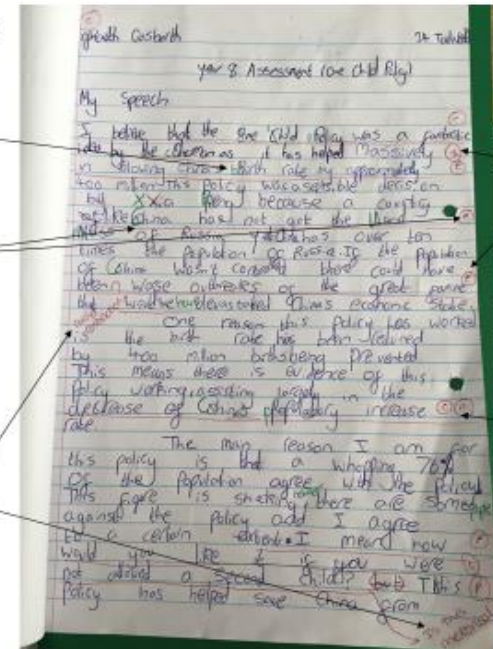 Year 8 Assessment (One Child Policy)
My Speech
I belive that the One Child Policy was a fantastic
idea by the as it has helped Massively
in slowing China birth rate by approximately
400 million. This Policy was a sensible decision
by because a country
like China has not got the
of Russia has over ten
times the Population of Russia. If the Population
of China wasn't there could have
been worse outbreaks of the great famine
that would have devastated China's economic state.
One reason this policy has worked
is the birth rate has been reduced
by 400 million births being Prevented
This means there is evidence of this
Policy working, assisting largely in the
decrease of China's Population increase
rate.
The main reason I am for
this policy is that a whopping 76%
of the Population agree with the Policy
This figure is there are some
against the policy and I agree
to a certain extent. I mean how
would you like it if you were
not allowed a Second Child? but This
Policy has helped save China from
Is this